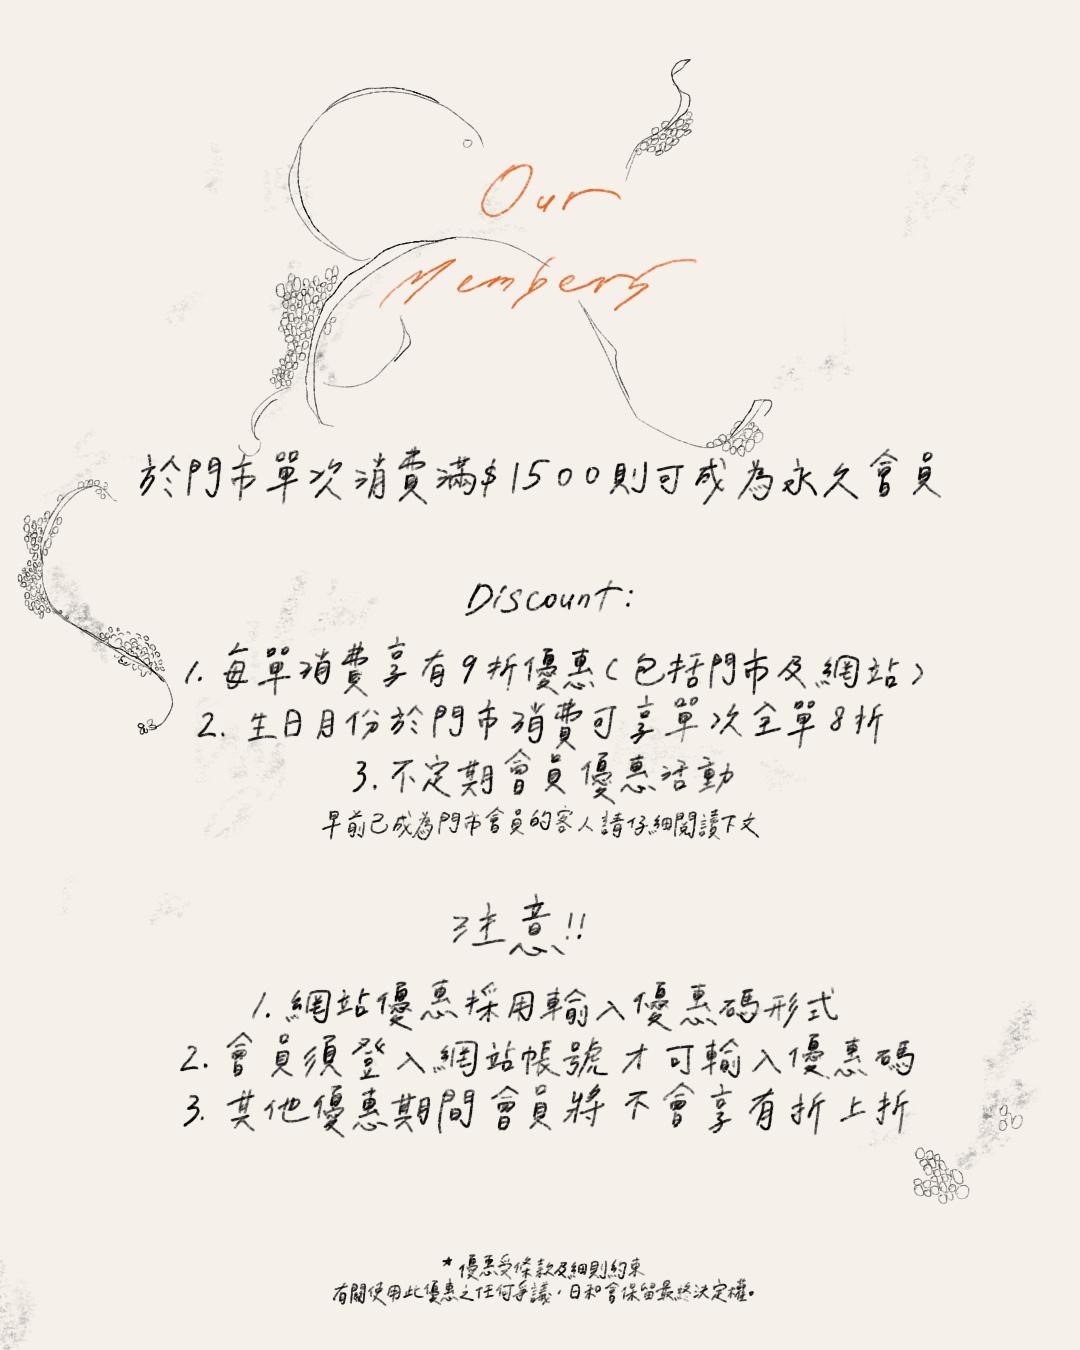 Our
Members
於門市單次消費滿$1500則可成為永久會員
Discount:
1. 每單消費享有9折優惠(包括門市及網站)
2. 生日月份於門市消費可享單次全單8折
3. 不定期會員優惠活動
早前已成為門市會員的客人請仔細閱讀下文
注意!!
1. 網站優惠採用輸入優惠碼形式
2. 會員須登入網站帳號才可輸入優惠碼
3. 其他優惠期間會員將不會享有折上折
*優惠受條款及細則約束
有關使用此優惠之任何爭議，日和會保留最終決定權。